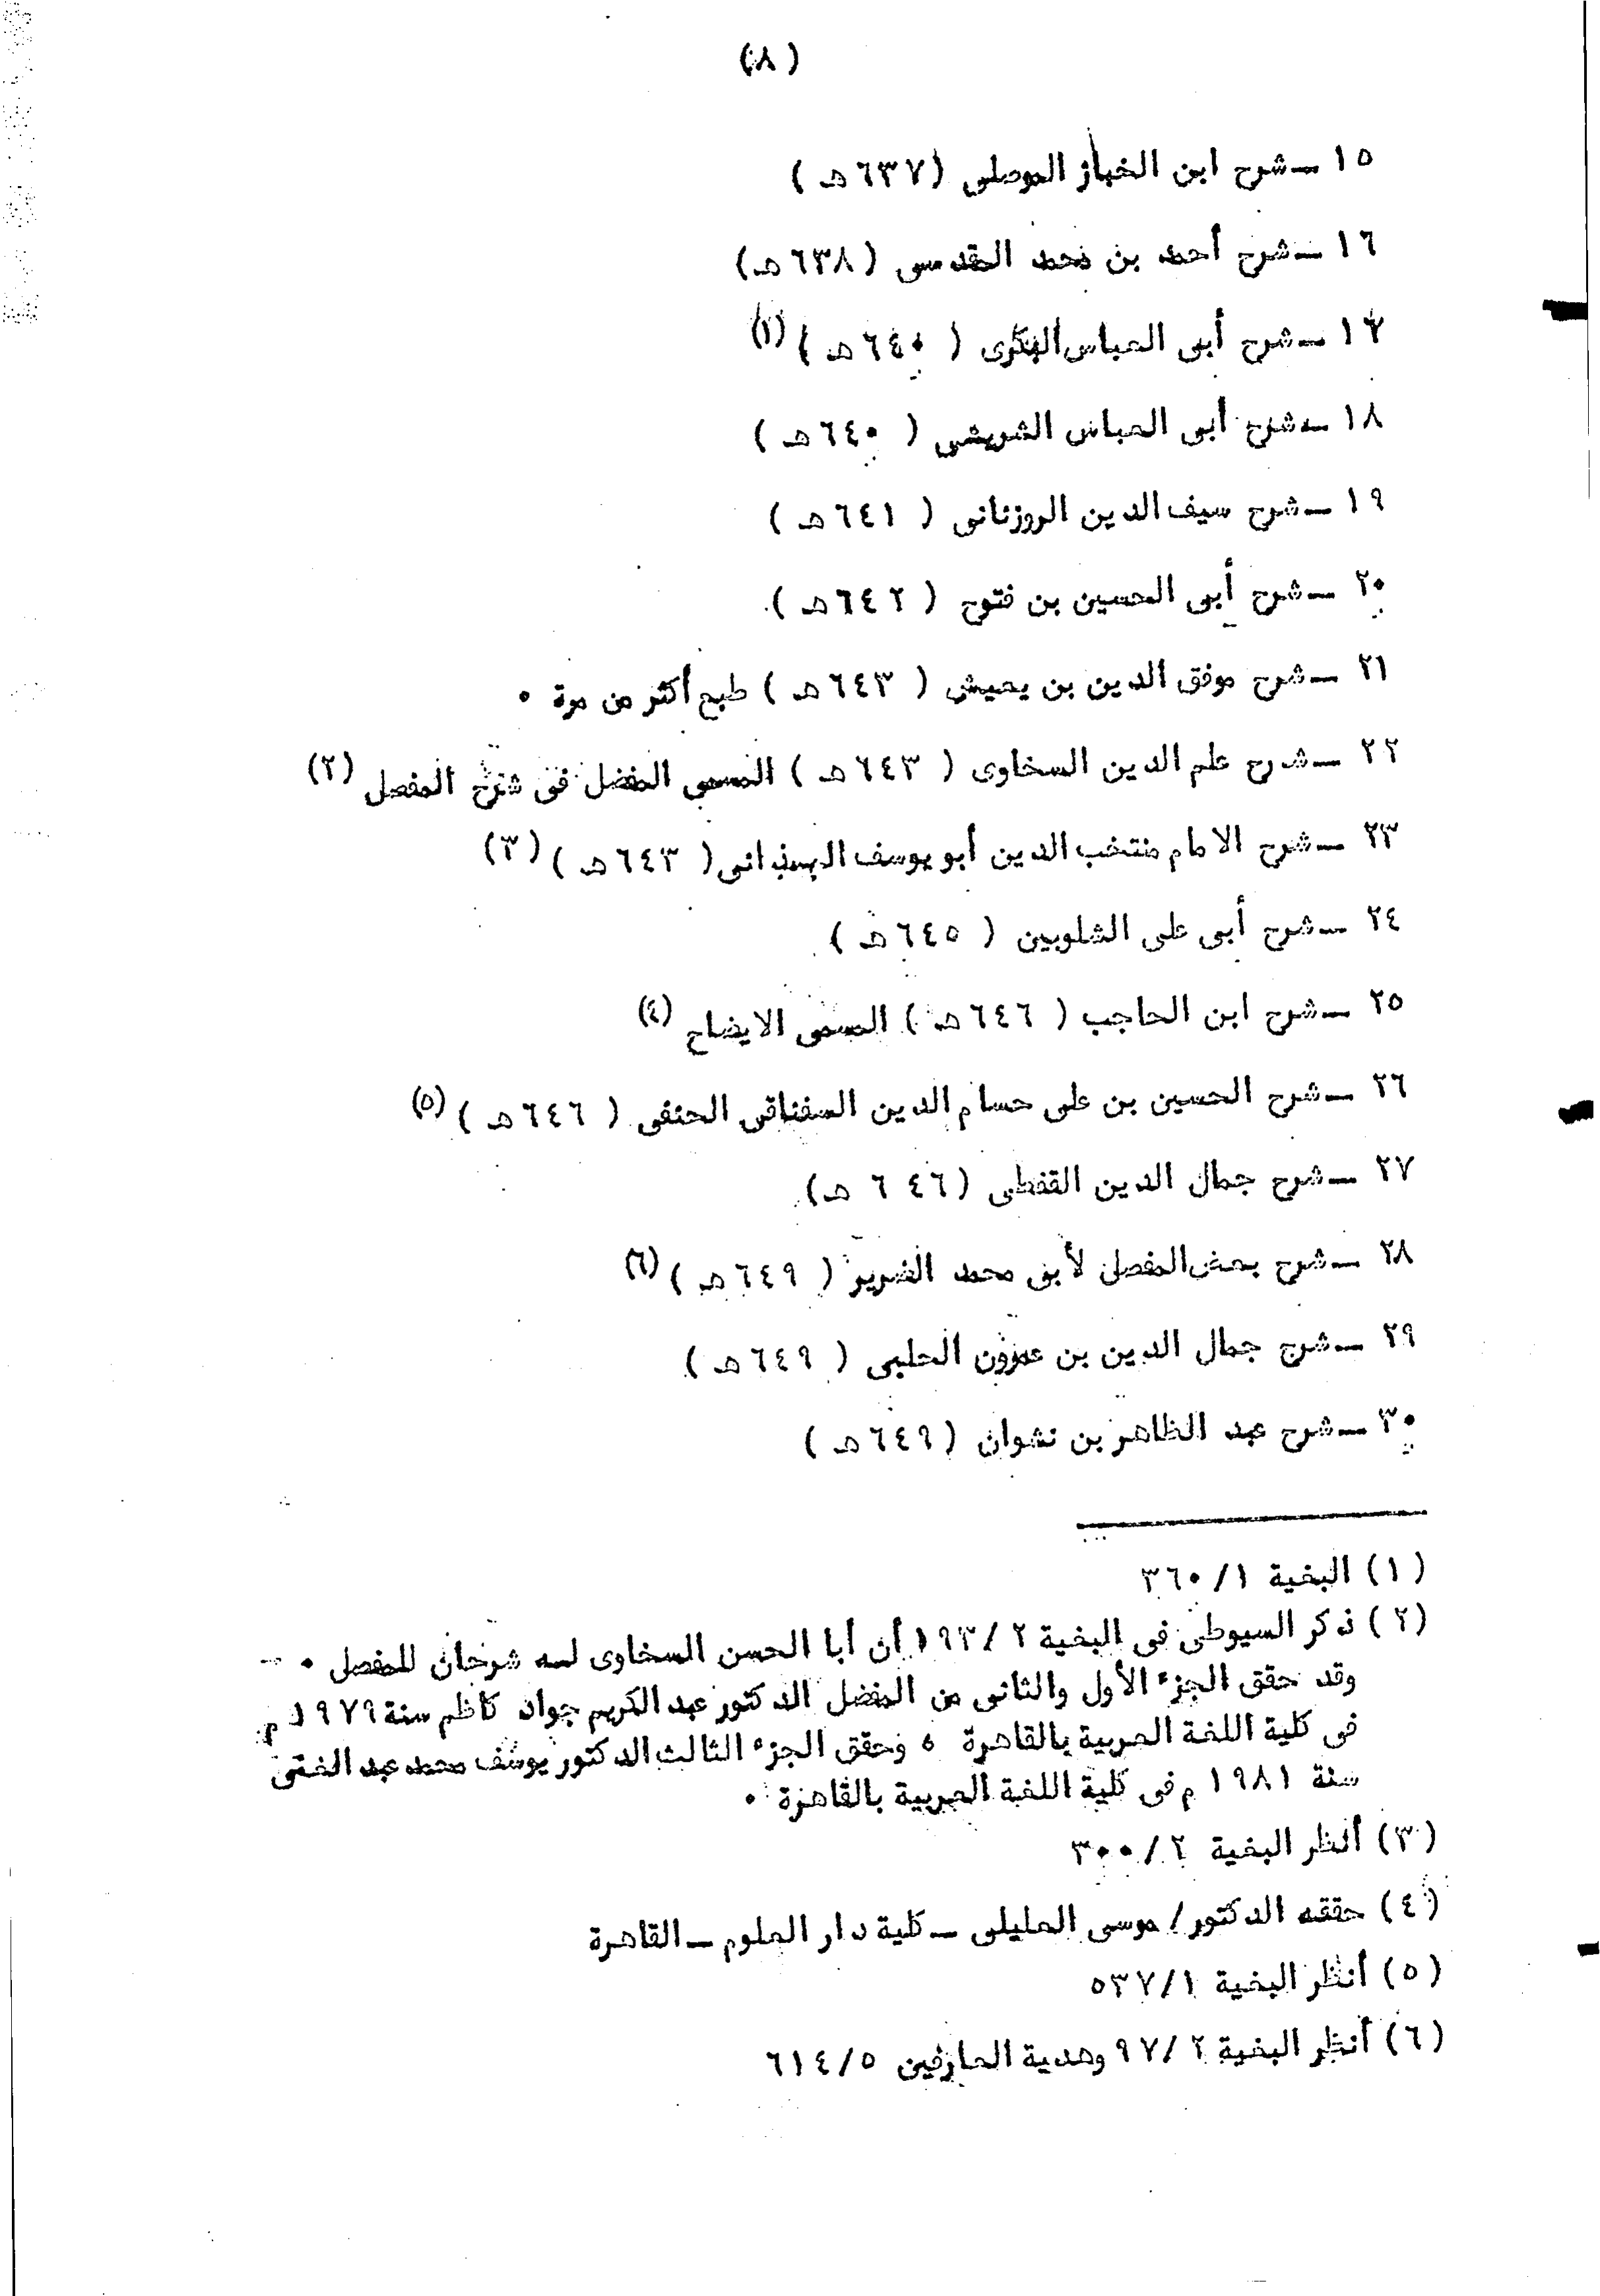 (٨)
١٥ ــ شرح ابن الخباز الموصلى (٦٣٧ هـ)
١٦ ــ شرح أحمد بن محمد المقدسى (٦٣٨ هـ)
١٧ ــ شرح أبى العباس البكرى (٦٤٠ هـ) (١)
١٨ ــ شرح أبى العباس الشريشى (٦٤٠ هـ)
١٩ ــ شرح سيف الدين الروزنانى (٦٤١ هـ)
٢٠ ــ شرح أبى الحسين بن فتوح (٦٤٢ هـ)
٢١ ــ شرح موفق الدين بن يعيش (٦٤٣ هـ) طبع أكثر من مرة ٠
٢٢ ــ شرح علم الدين السخاوى (٦٤٣ هـ) المسمى المفضل فى شرح المفصل (٢)
٢٣ ــ شرح الامام منتخب الدين أبو يوسف الهمذانى (٦٤٣ هـ) (٣)
٢٤ ــ شرح أبى على الشلوبين (٦٤٥ هـ)
٢٥ ــ شرح ابن الحاجب (٦٤٦ هـ) المسمى الايضاح (٤)
٢٦ ــ شرح الحسين بن على حسام الدين السفناقى الحنفى (٦٤٦ هـ) (٥)
٢٧ ــ شرح جمال الدين القفطى (٦٤٦ هـ)
٢٨ ــ شرح بعض المفصل لأبى محمد الضرير (٦٤٩ هـ) (٦)
٢٩ ــ شرح جمال الدين بن عمرون الحلبى (٦٤٩ هـ)
٣٠ ــ شرح عبد الظاهر بن نشوان (٦٤٩ هـ)
(١) البغية ٣٦٠/١
(٢) ذكر السيوطى فى البغية ١٩٣/٢ أن أبا الحسن السخاوى له شرحان للمفصل ٠
وقد حقق الجزء الأول والثانى من المفضل الدكتور عبد الكريم جواد كاظم سنة ١٩٧٩ م
فى كلية اللغة العربية بالقاهرة ٥ وحقق الجزء الثالث الدكتور يوسف محمد عبد الغنى
سنة ١٩٨١ م فى كلية اللغة العربية بالقاهرة ٠
(٣) أنظر البغية ٣٠٠/٢
(٤) حققه الدكتور / موسى العليلى ــ كلية دار العلوم ــ القاهرة
(٥) أنظر البغية ٥٣٧/١
(٦) أنظر البغية ٩٧/٢ وهدية العارفين ٦١٤/٥